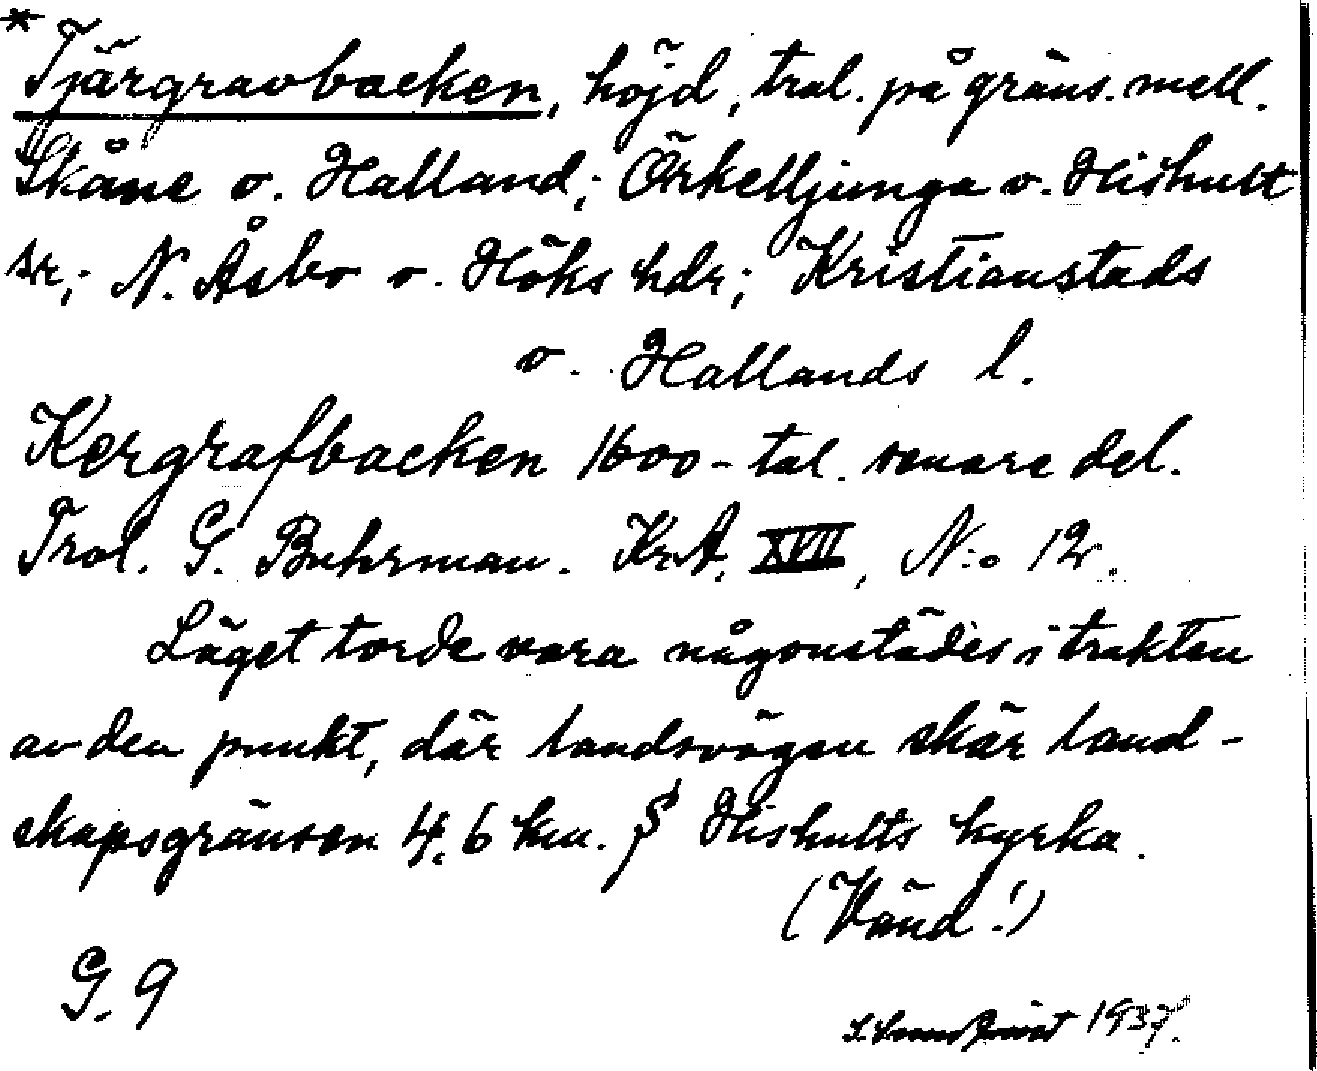 *Tjärgravbacken, höjd, trol. på gräns. mell.
Skåne o. Halland; Örkelljunga o. Hishult
sr; N. Åsbo o. Höks hdr; Kristianstads
o. Hallands l.
Kergrafbacken 1600-tal. senare del.
Trol. G. Buhrman. KrA. XVII, N:o 12.
Läget torde vara någonstädes i trakten
av den punkt, där landsvägen skär land-
skapsgränsen 4,6 km. S Hishults kyrka.
(Vänd!)
G. 9
1937.